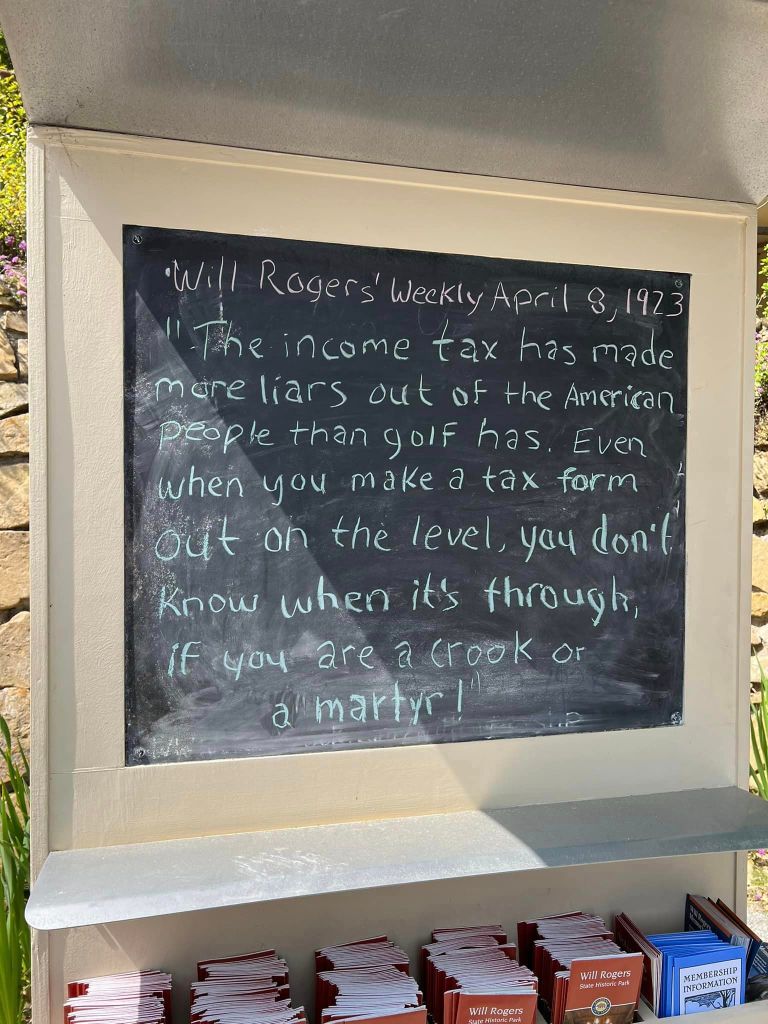 Will Rogers' Weekly April 8, 1923
"The income tax has made
more liars out of the American
people than golf has. Even
when you make a tax form
out on the level, you don't
know when it's through,
if you are a crook or
a martyr!"
Will Rogers
State Historic Park
Will Rogers
State Historic Park
MEMBERSHIP
INFORMATION